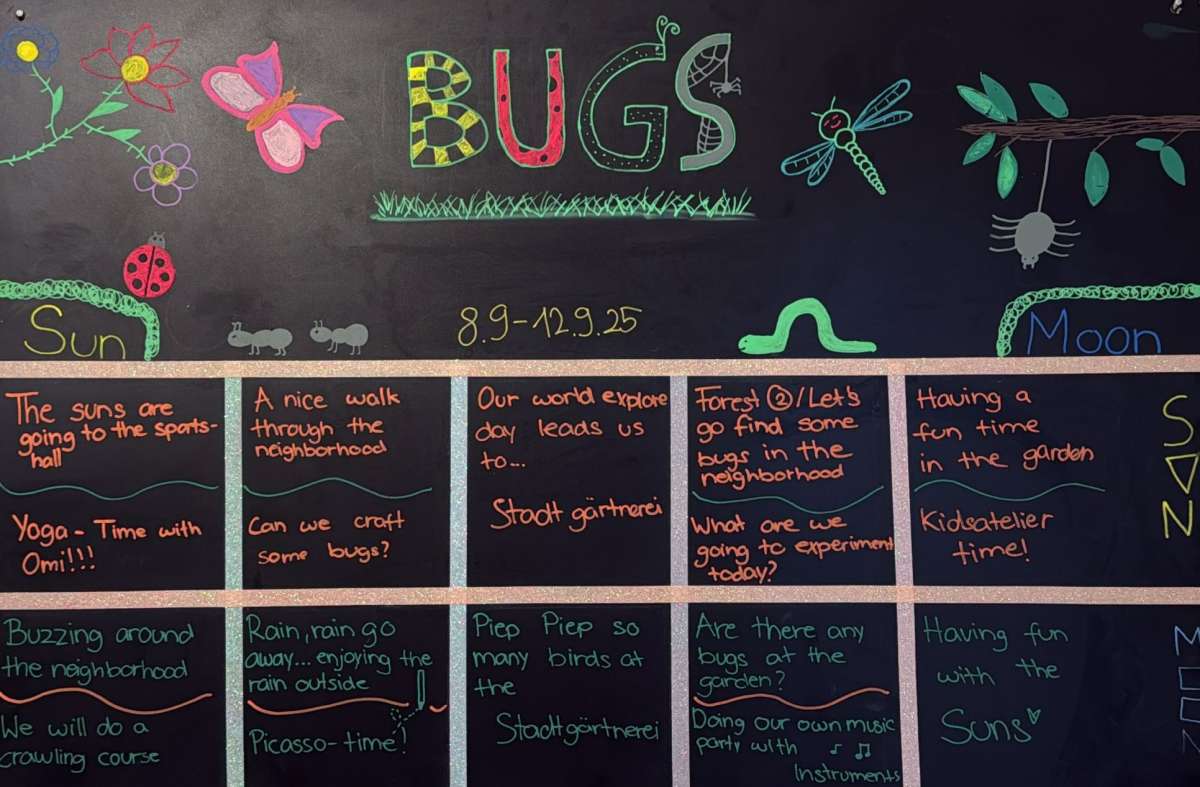 BUGS
Sun
8.9-12.9.25
Moon
The suns are
going to the sports-
hall
Yoga - Time with
Omi!!!
A nice walk
through the
neighborhood
Can we craft
some bugs?
Our world explore
day leads us
to...
Stadtgärtnerei
Forest ②/Let's
go find some
bugs in the
neighborhood
What are we
going to experiment
today?
Having a
fun time
in the garden
Kidsatelier
time!
S
U
N
Buzzing around
the neighborhood
We will do a
crawling course
Rain, rain go
away... enjoying the
rain outside
Picasso-time!
Piep Piep so
many birds at
the
Stadtgärtnerei
Are there any
bugs at the
garden?
Doing our own music
party with
Instruments
Having fun
with the
Suns
M
O
O
N